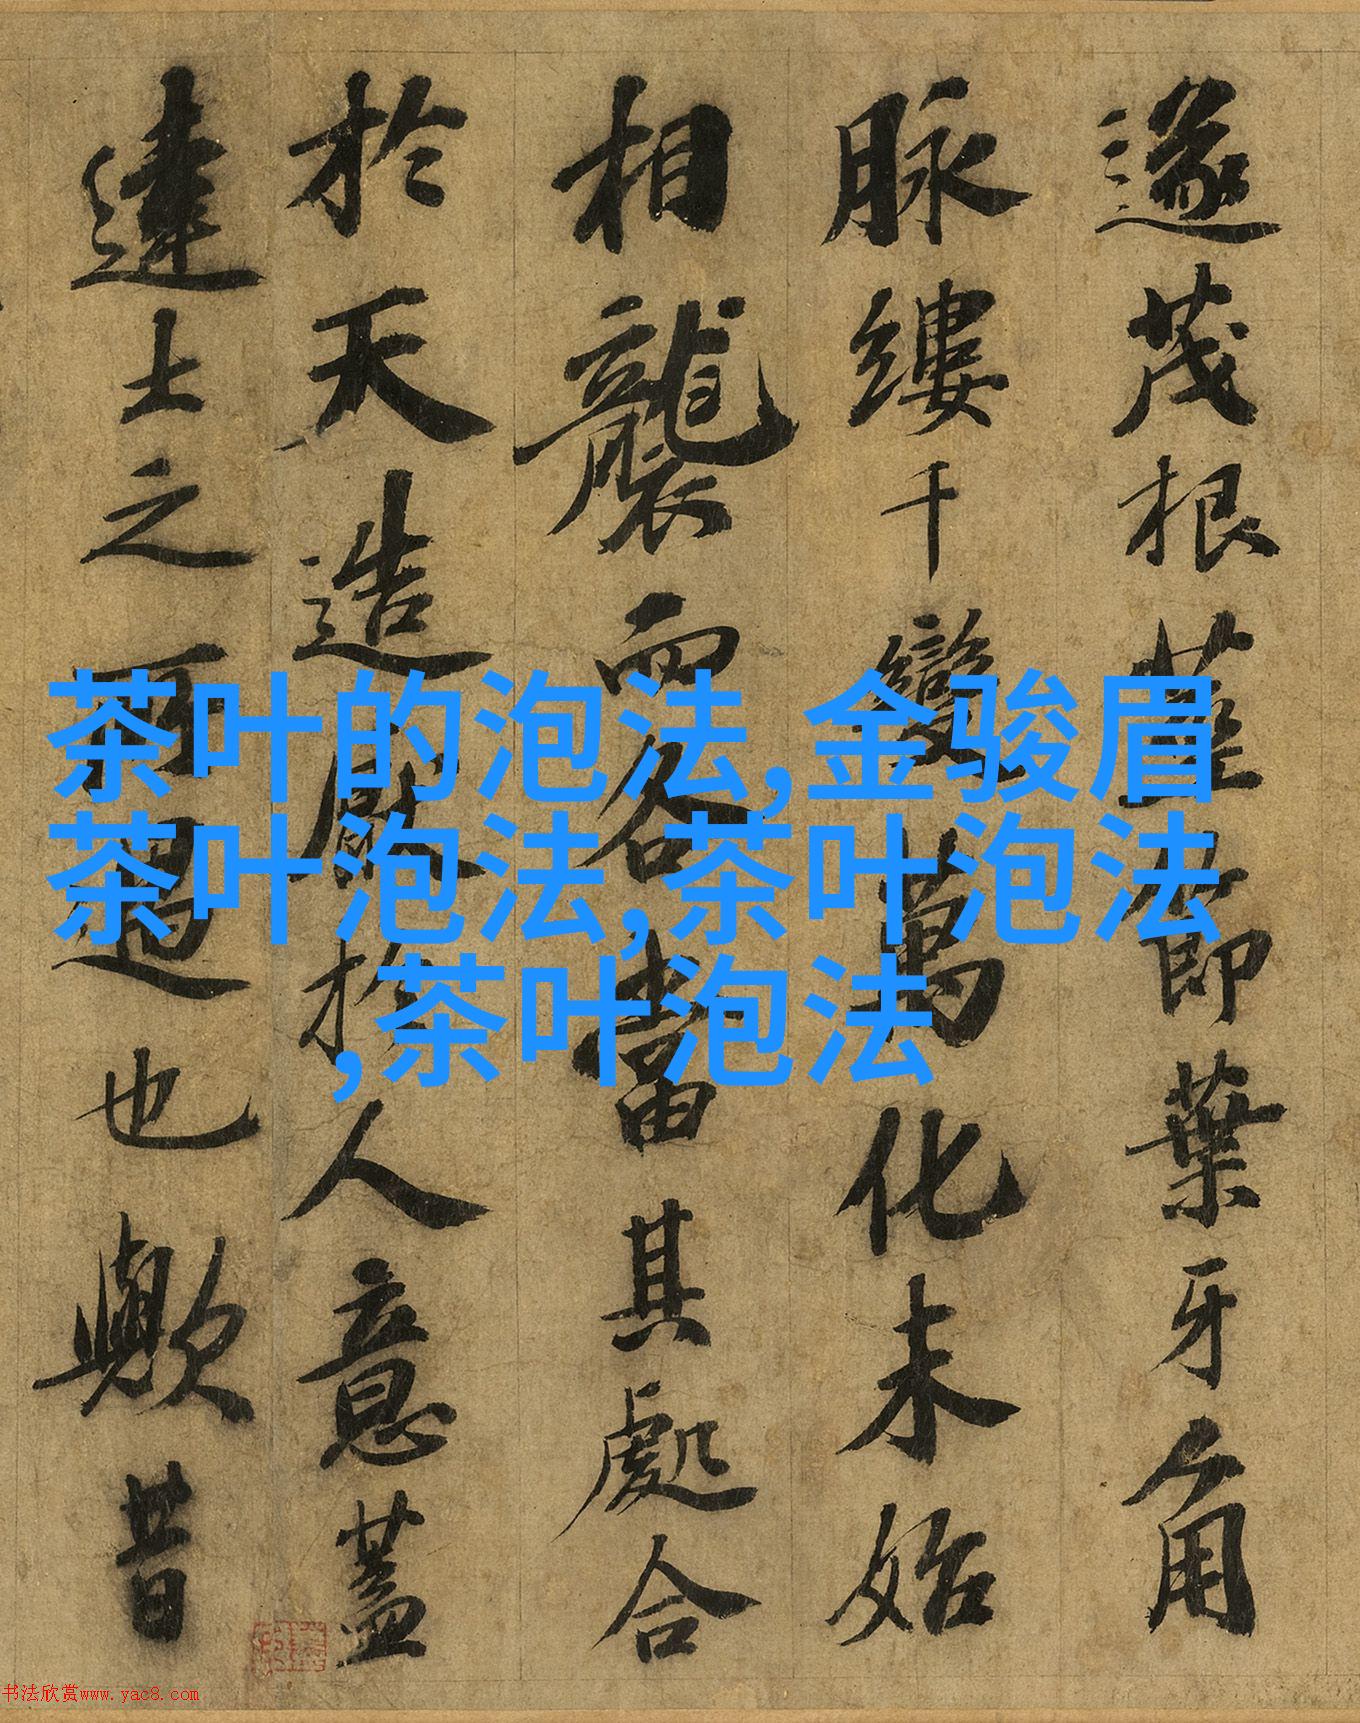 遂茂根莖節葉牙角
脉縷千變萬化未始
相襲而各當其處合
於天造厭於人意蓋
達士之所也歟昔
茶叶的泡法,金骏眉
茶叶泡法,茶叶泡法
,茶叶泡法
书法欣赏www.yac8.com